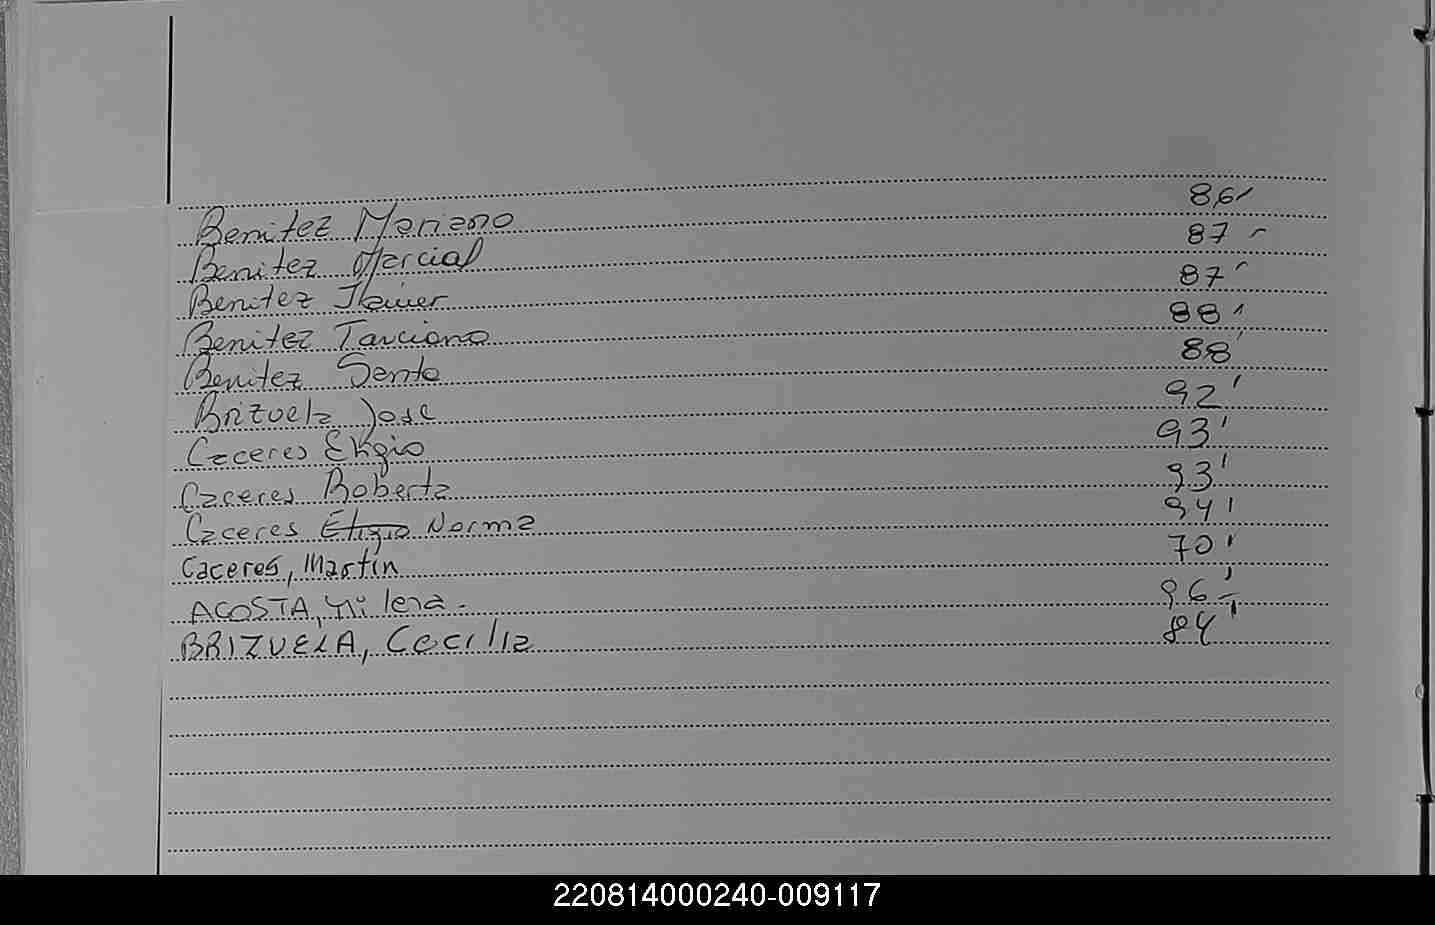 Benitez Mariano 86
Benitez Marcial 87
Benitez Javier 87
Benitez Tarciano 88
Benitez Santo 88
Brizuela Jose 92
Caceres Eligio 93
Caceres Roberta 93
Caceres Eligio Norma 94
Caceres, Martin 70
ACOSTA, Milena. 96
BRIZUELA, Cecilia 84
220814000240-009117